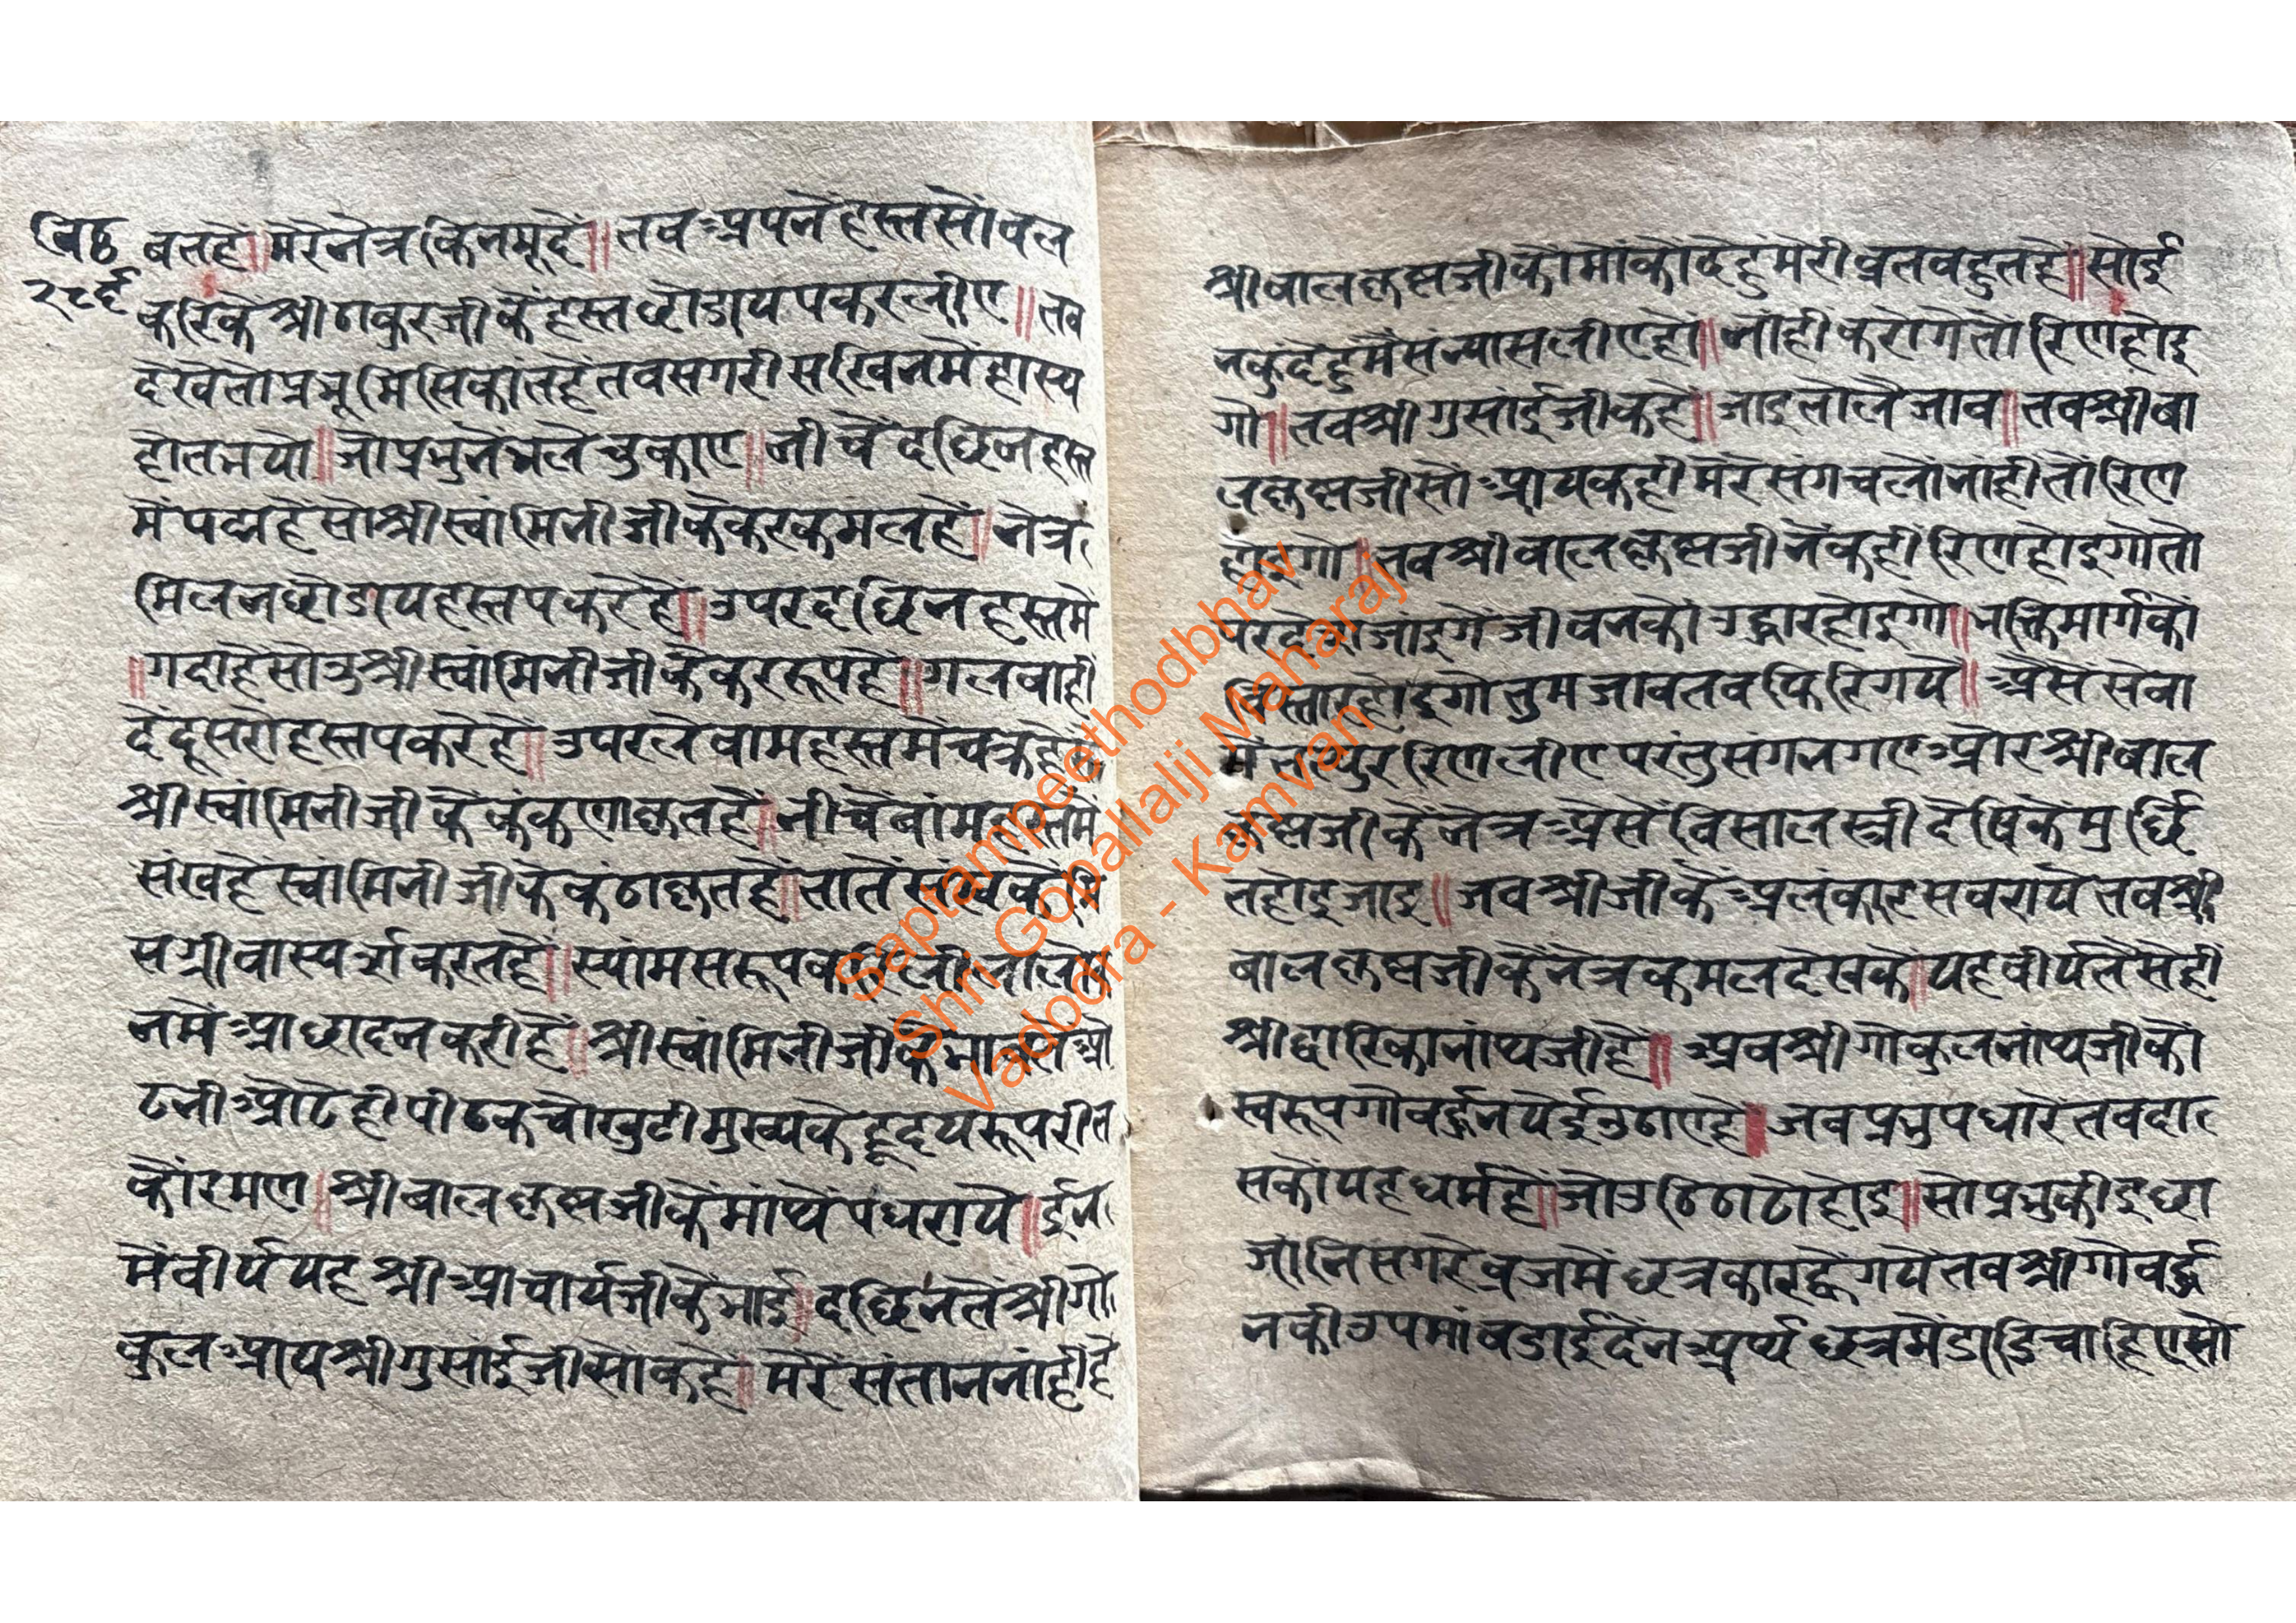 विठ
२८६
बतहें॥मेरेनेत्रकिनमूदें॥तबअपनेहस्तसोंबल
करिकेंश्रीठाकुरजीकेंहस्तछोडायपकरलीए॥तब
देखेतोप्रभूमिसिकांतहेंतबसगरीसखिनमेंहास्य
होतभयो॥जोप्रभुनेंभलेचुकाए॥नीचेंदछिनहस्त
मेंपद्महेंसोश्रीस्वामिनीजीकेकरकमलहें॥नेत्र
मिलनछोडायहस्तपकरेहें॥उपरदछिनहस्तमें
॥गदाहेसोउश्रीस्वांमिनीजीकेंकररूपहें॥गलबाही
देंदूसरोहस्तपकरेहें॥उपरलेवामहस्तमेंचक्रहेसो
श्रीस्वांमिनीजीकेंकंकणाकृतहें॥नीचेंबांमहस्तमें
संखहेस्वामिनीजीकेकंठाकृतहें॥तातें
सग्रीवास्पर्शकरतहें॥स्यांमसरूप
नमेंआछादनकरीहें॥श्रीस्वांमिनीजी
ढनीओढेहीपीठकचोखुटीमुख्यकेहृदयरूपरील
कोंरमण॥श्रीबालकृष्णजीकेंमांथेंपधराये॥ईन
मेंवीर्ययहश्रीआचार्यजीकेंभाई॥दछिनतेंश्रीगो
कुलआयश्रीगुसांईजीसोंकहें॥मेरेंसंताननांहीहें
श्रीबालकृष्णजीकोंमोंकोंदेहुमेरीव्रतबहुतहें॥सोई
नकुदेहुमेंसंन्यासलीएहो॥नांहीकरोगेतोरिणहोइ
गो॥तबश्रीगुसांईजीकहें॥जाइतोलेजाव॥तबश्रीबा
लकृष्णजीसोंआयकहीमेरेसंगचलोनांहीतोंरिण
होइगो॥तबश्रीबालकृष्णजीनेंकहीरिणहोइगोतो
परदेसजांइगेंजीवनकोउद्धारहोइगो॥भक्तिमार्गकों
विस्तारहोइगोतुमजावतबफिरिगये॥ऐसेंसेवा
मेंतत्पुररिणलीएपरंतुसंगनगएओरश्रीबाल
कृष्णजीकेंनेत्रऐसेंविसालस्त्रीदेषिकेमुर्छि
तहोइजाइ॥जबश्रीजीकेंअलंकारसबरायेतबश्री
बालकृष्णजीकेंनेत्रकमलदेखके॥यहवीर्यतेसेही
श्रीद्वारिकानांथजीहें॥अबश्रीगोकुलनांथजीको
स्वरूपगोवर्द्धनपेईउठाएहें॥जबप्रभुपधारेतबदा
सकोयहधर्महें॥जोउठिठाढोहोइ॥सोप्रभुकीइछा
जांनिसगरेव्रजमेंछत्रकारह्वेगयेतबश्रीगोवर्द्ध
नकीउपमांबडाईदेंनअर्थछत्रमेंडांडिचाहिएसो
Saptampeethodbhav
Shri Gopallalji Maharaj
Vadodra - Kamvan